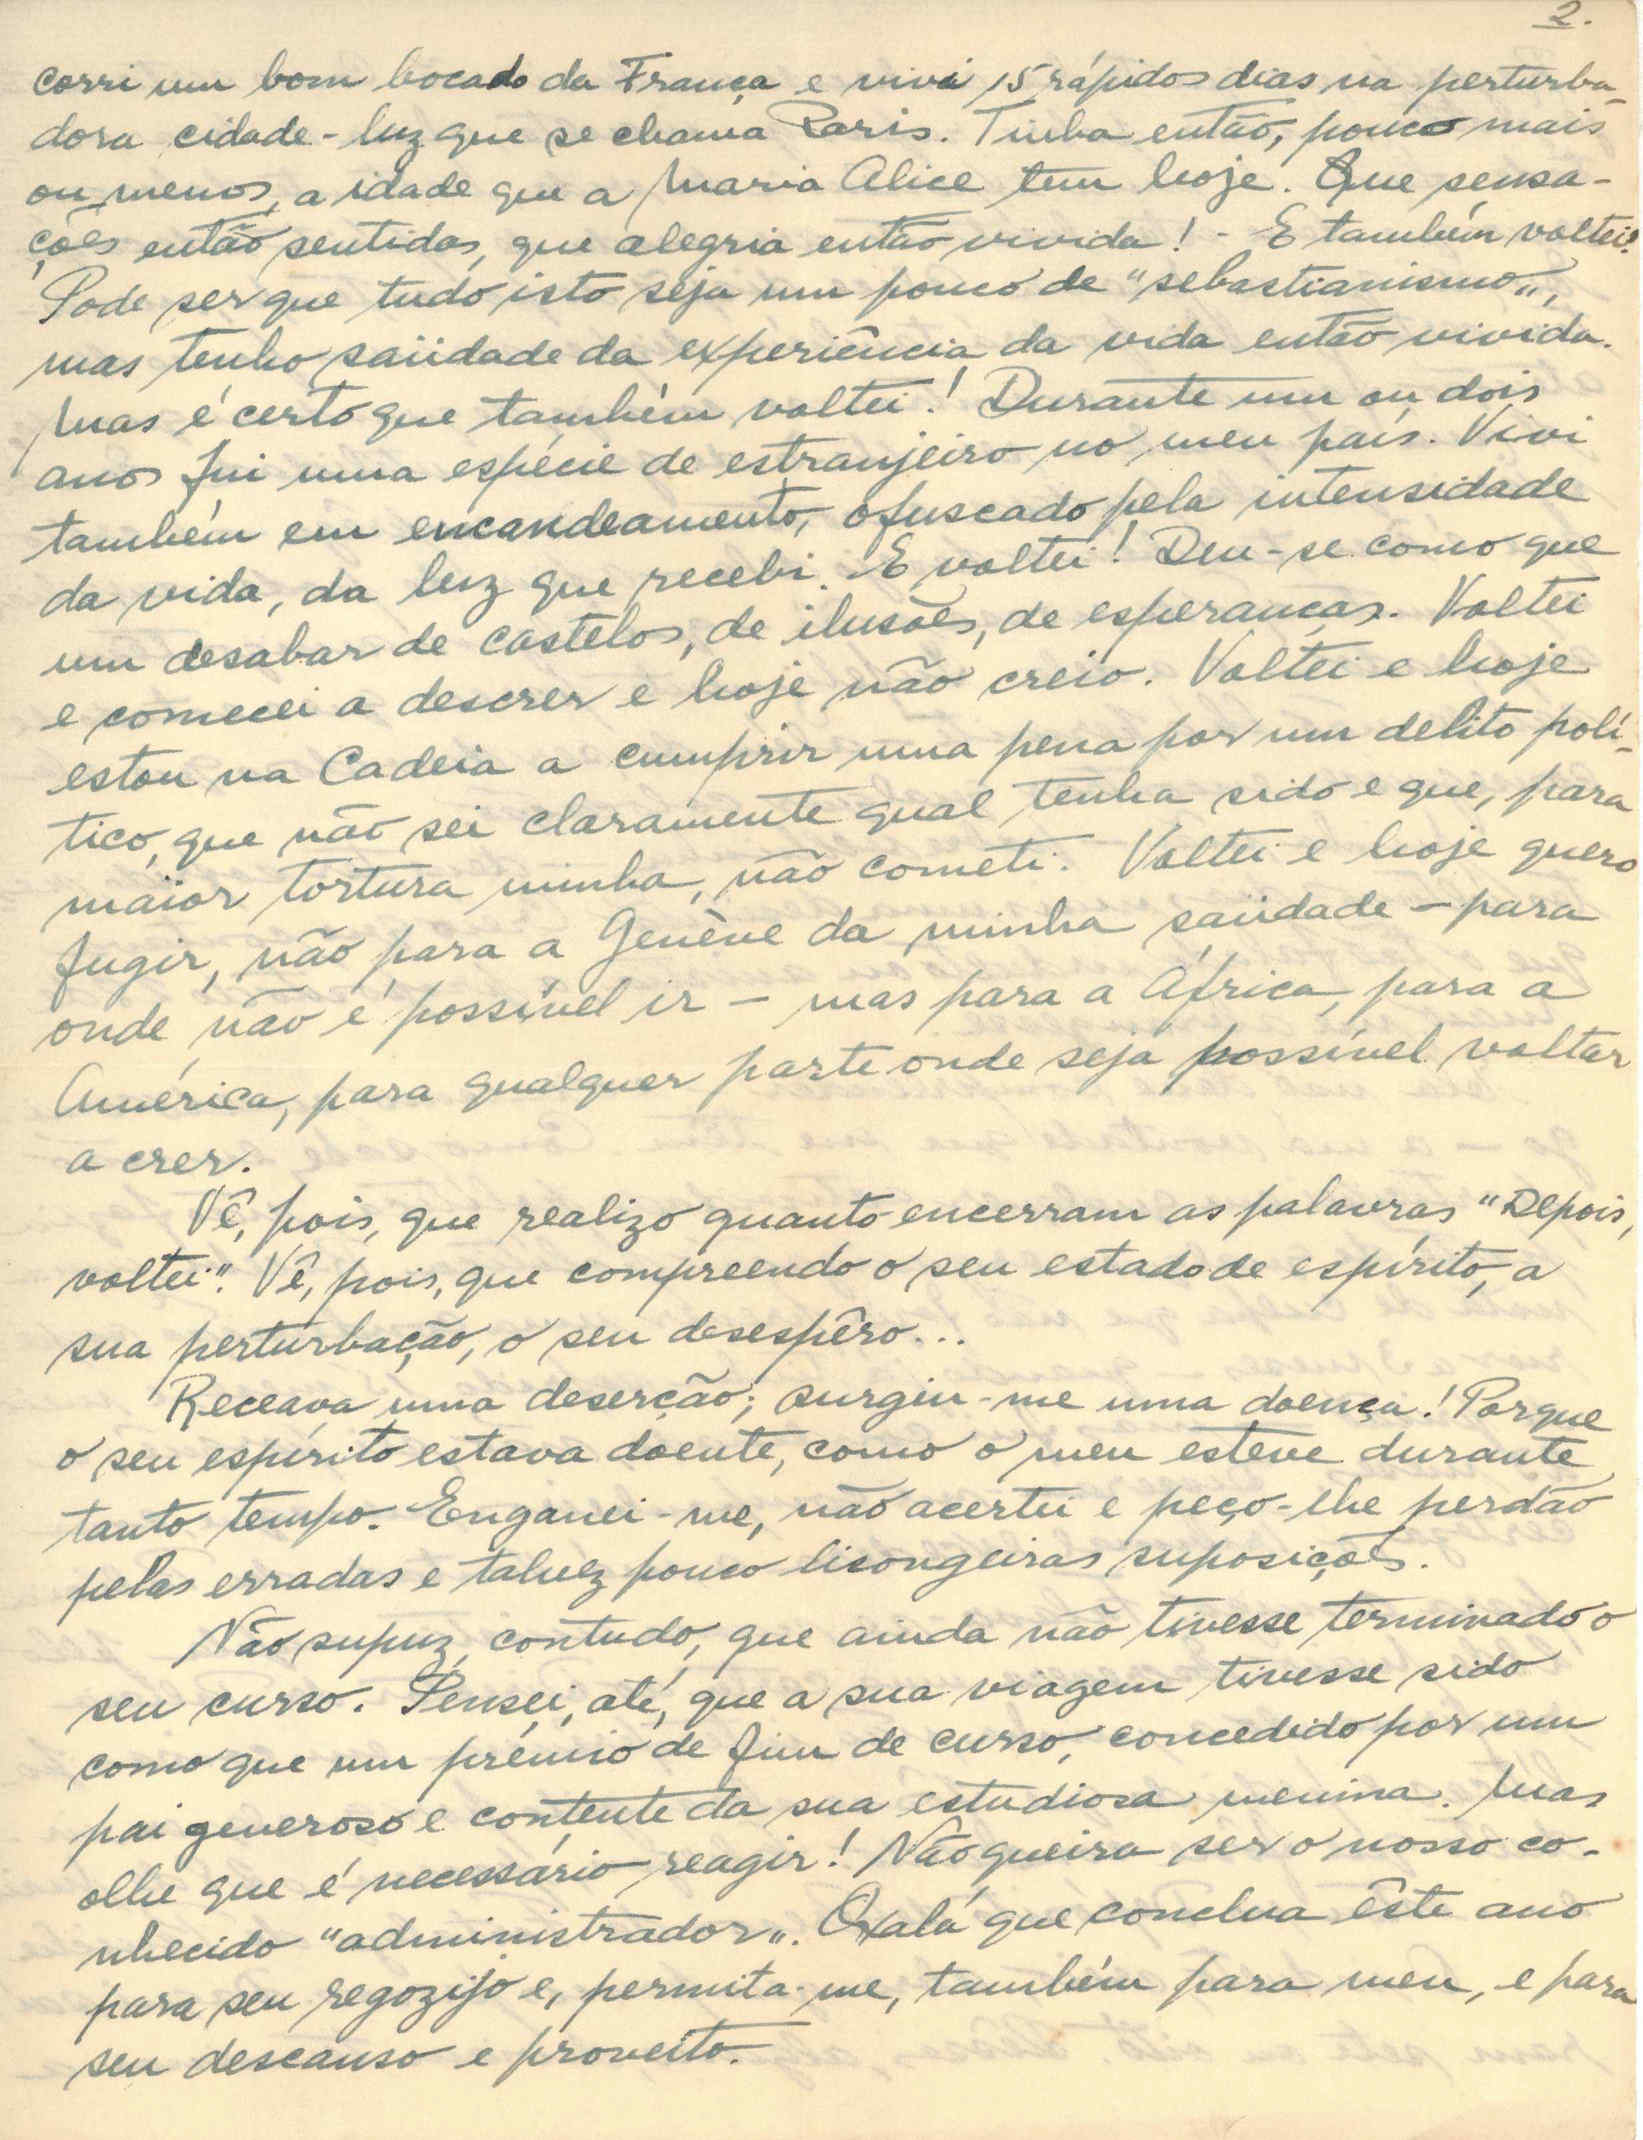 2.
corri um bom bocado da França e vivi 15 rápidos dias na perturba-
dora cidade-luz que se chama Paris. Tinha então, pouco mais
ou menos, a idade que a Maria Alice tem hoje. Que sensa-
ções então sentidas, que alegria então vivida! - E também voltei!
Pode ser que tudo isto seja um pouco de "sebastianismo",
mas tenho saüdade da experiência, da vida então vivida.
Mas é certo que também voltei! Durante um ou dois
anos fui uma espécie de estranjeiro no meu país. Vivi
também em encandeamento, ofuscado pela intensidade
da vida, da luz que recebi. E voltei! Deu-se como que
um desabar de castelos, de ilusões, de esperanças. Voltei
e comecei a descrer e hoje não creio. Voltei e hoje
estou na Cadeia a cumprir uma pena por um delito polí-
tico, que não sei claramente qual tenha sido e que, para
maior tortura minha, não cometi. Voltei e hoje quero
fugir, não para a Genève da minha saüdade - para
onde não é possível ir - mas para a África, para a
América, para qualquer parte onde seja possível voltar
a crer.
Vê, pois, que realizo quanto encerram as palavras "Depois,
voltei". Vê, pois, que compreendo o seu estado de espírito, a
sua perturbação, o seu desespêro...
Receava uma deserção; surgiu-me uma doença! Porque
o seu espírito estava doente, como o meu esteve durante
tanto tempo. Enganei-me, não acertei e peço-lhe perdão
pelas erradas e talvez pouco lisongeiras suposições.
Não supuz, contudo, que ainda não tivesse terminado o
seu curso. Pensei, até, que a sua viagem tivesse sido
como que um prémio de fim de curso, concedido por um
pai generoso e contente da sua estudiosa menina. Mas
olhe que é necessário reagir! Não queira ser o nosso co-
nhecido "administrador". Oxalá que conclua êste ano
para seu regozijo e, permita-me, também para meu, e para
seu descanso e proveito.